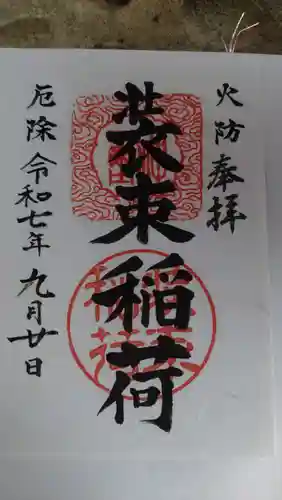 火防奉拝
装束稲荷
厄除 令和七年 九月廿日